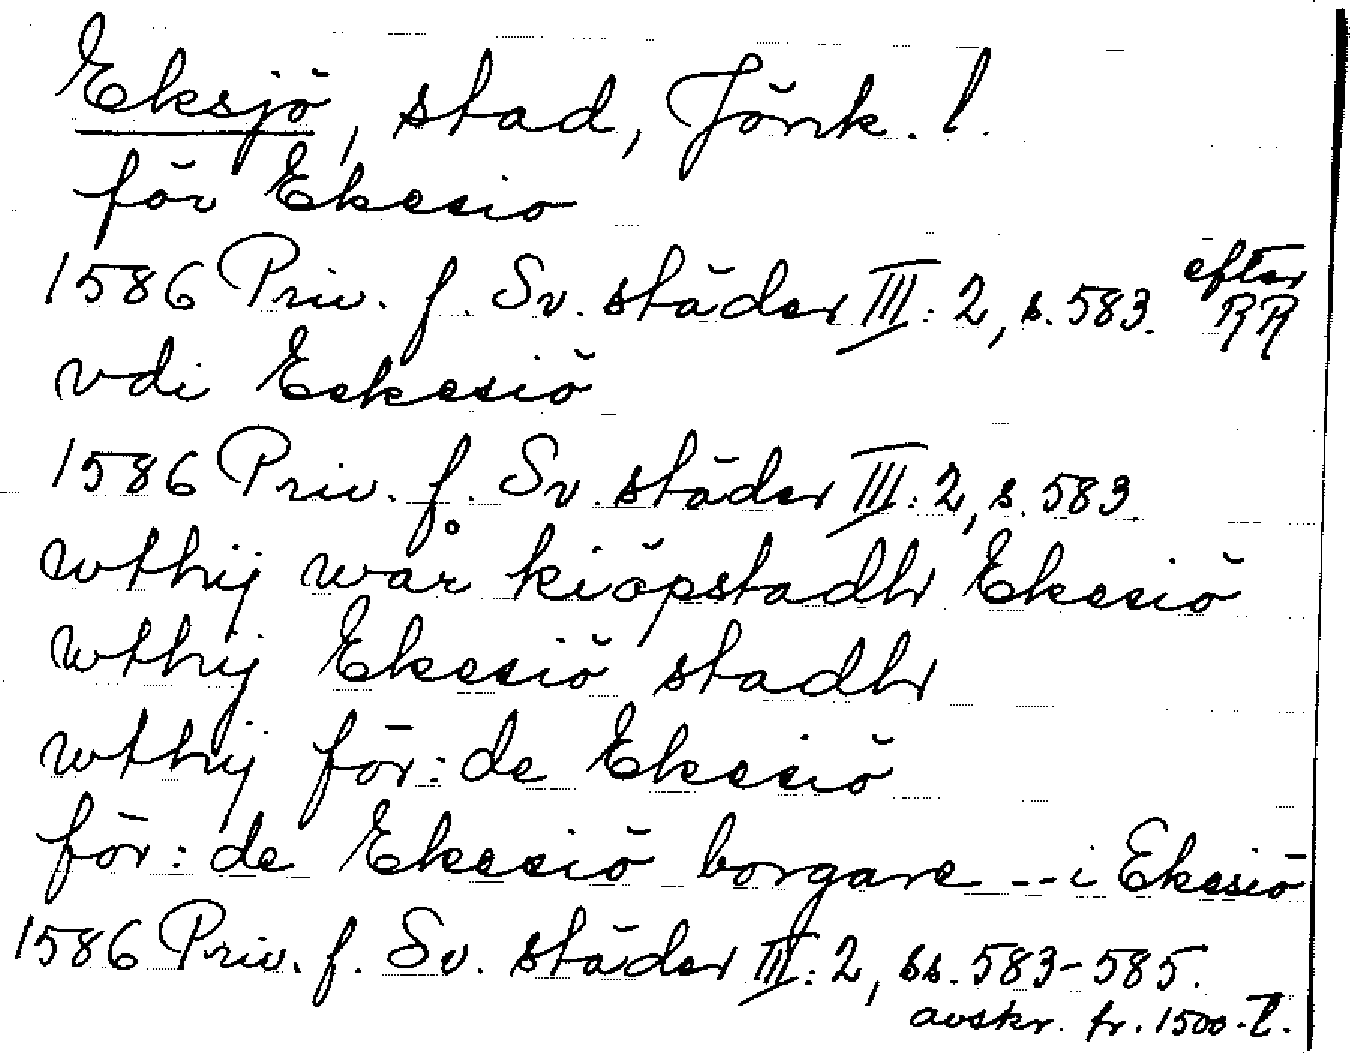 Eksjö, stad, Jönk. l.
för Ekesiö
1586 Priv. f. Sv. städer III: 2, s. 583. efter RR
vdi Eekesiö
1586 Priv. f. Sv. städer III: 2, s. 583.
wthij wår kiöpstadh Ekesiö
wthij Ekesiö stadh
wthij för: de Ekesiö
för: de Ekesiö borgare -- i Ekesiö
1586 Priv. f. Sv. städer III: 2, ss. 583-585.
avskr. fr. 1500-t.